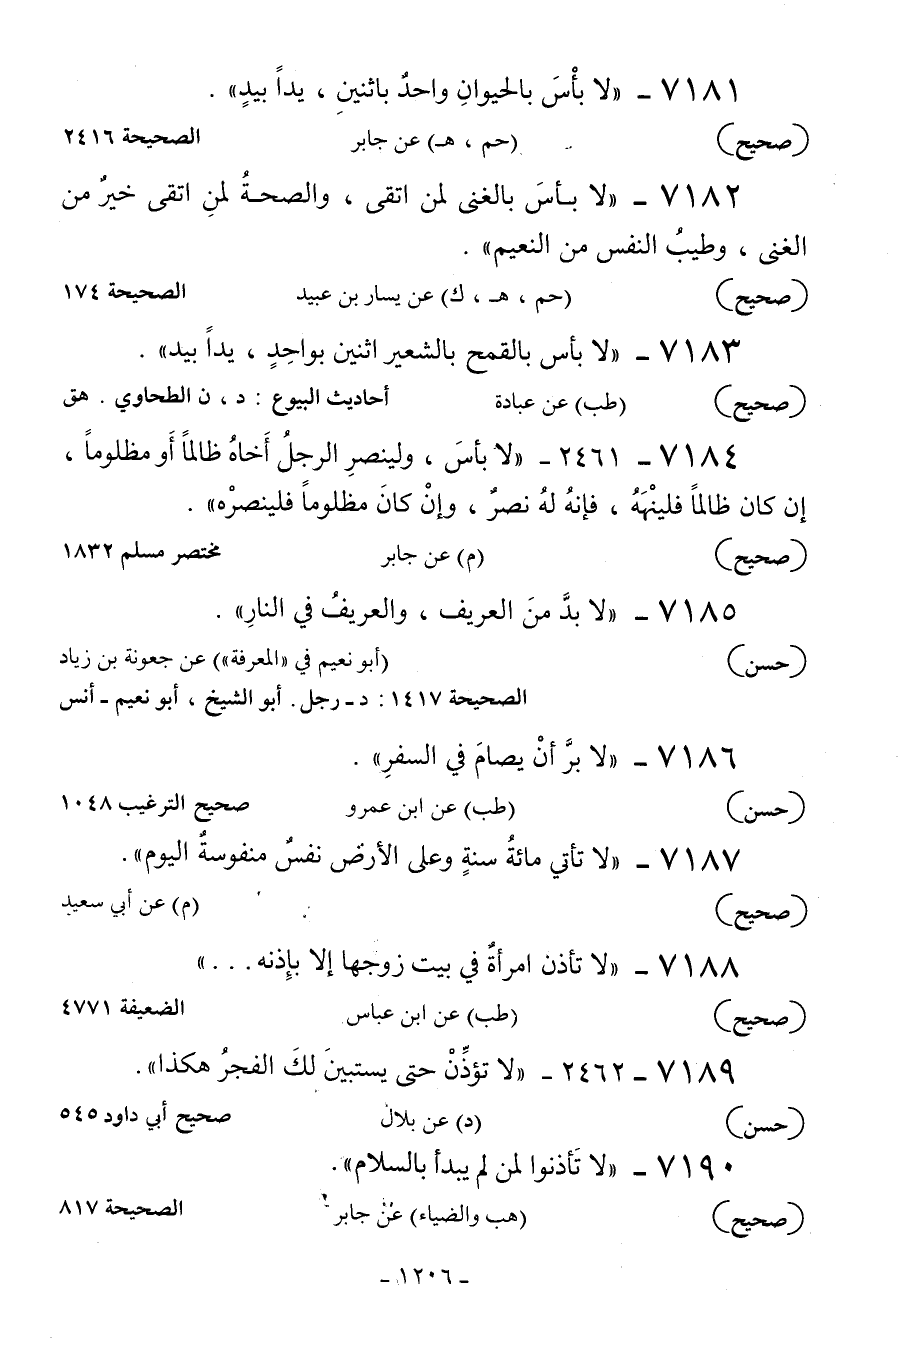 ٧١٨١ ـ «لا بأْسَ بالحيوانِ واحدٌ باثنينِ ، يداً بيدٍ» .
(صحيح) (حم ، هـ) عن جابر الصحيحة ٢٤١٦
٧١٨٢ ـ «لا بـأسَ بالغنى لمن اتقى ، والصحـةُ لمنِ اتقى خيرٌ من
الغنى ، وطيبُ النفس من النعيم» .
(صحيح) (حم ، هـ ، ك) عن يسار بن عبيد الصحيحة ١٧٤
٧١٨٣ ـ «لا بأس بالقمح بالشعير اثنين بواحِدٍ ، يداً بيد» .
(صحيح) (طب) عن عبادة أحاديث البيوع : د ، ن الطحاوي . هق
٧١٨٤ ـ ٢٤٦١ ـ «لا بأسَ ، ولينصرِ الرجلُ أَخاهُ ظالماً أَو مظلوماً ،
إن كان ظالماً فلينْهَهُ ، فإنهُ لهُ نصرٌ ، وإنْ كانَ مظلوماً فلينصرْه» .
(صحيح) (م) عن جابر مختصر مسلم ١٨٣٢
٧١٨٥ ـ «لا بدَّ منَ العريف ، والعريفُ في النارِ» .
(حسن) (أبو نعيم في «المعرفة») عن جعونة بن زياد
الصحيحة ١٤١٧ : د ـ رجل. أبو الشيخ ، أبو نعيم ـ أنس
٧١٨٦ ـ «لا برَّ أنْ يصامَ في السفرِ» .
(حسن) (طب) عن ابن عمرو صحيح الترغيب ١٠٤٨
٧١٨٧ ـ «لا تأتي مائةُ سنةٍ وعلى الأرض نفسٌ منفوسةٌ اليوم».
(صحيح) (م) عن أبي سعيد
٧١٨٨ ـ «لا تأذن امرأةٌ في بيت زوجها إلا بإِذنه . . .»
(صحيح) (طب) عن ابن عباس الضعيفة ٤٧٧١
٧١٨٩ ـ ٢٤٦٢ ـ «لا تؤذِّنْ حتى يستبينَ لكَ الفجرُ هكذا».
(حسن) (د) عن بلال صحيح أبي داود ٥٤٥
٧١٩٠ ـ «لا تَأذنوا لمن لم يبدأ بالسلام».
(صحيح) (هب والضياء) عن جابر الصحيحة ٨١٧
ـ ١٢٠٦ ـ